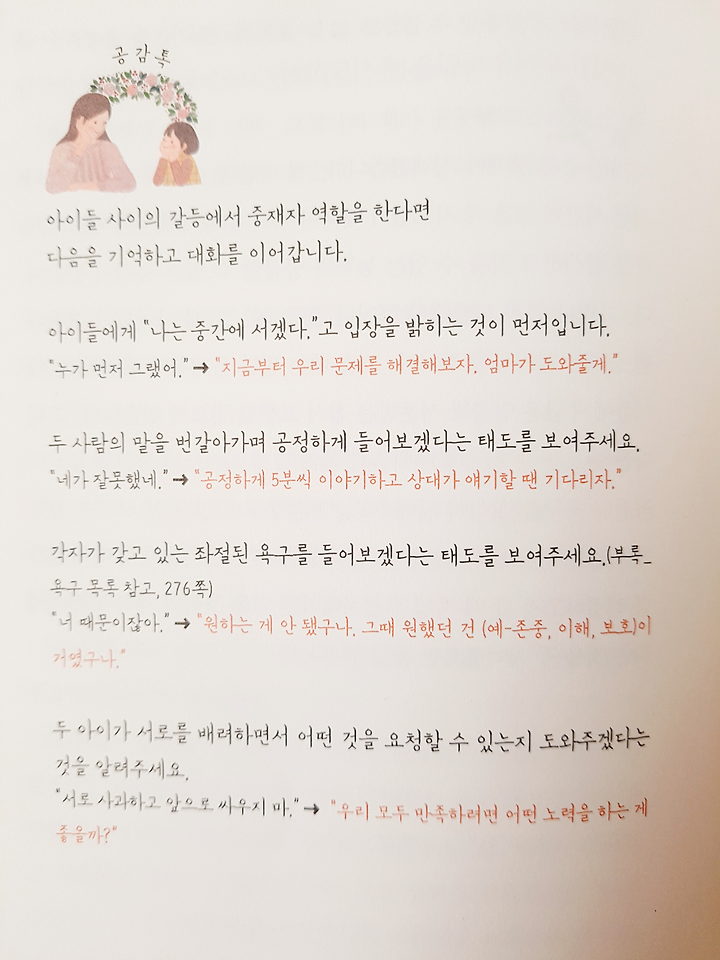 공감톡
아이들 사이의 갈등에서 중재자 역할을 한다면
다음을 기억하고 대화를 이어갑니다.
아이들에게 "나는 중간에 서겠다."고 입장을 밝히는 것이 먼저입니다.
"누가 먼저 그랬어." → "지금부터 우리 문제를 해결해보자. 엄마가 도와줄게."
두 사람의 말을 번갈아가며 공정하게 들어보겠다는 태도를 보여주세요.
"네가 잘못했네." → "공정하게 5분씩 이야기하고 상대가 얘기할 땐 기다리자."
각자가 갖고 있는 좌절된 욕구를 들어보겠다는 태도를 보여주세요.(부록_
욕구 목록 참고, 276쪽)
"너 때문이잖아." → "원하는 게 안 됐구나. 그때 원했던 건 (예-존중, 이해, 보호)이
거였구나."
두 아이가 서로를 배려하면서 어떤 것을 요청할 수 있는지 도와주겠다는
것을 알려주세요.
"서로 사과하고 앞으로 싸우지 마." → "우리 모두 만족하려면 어떤 노력을 하는 게
좋을까?"